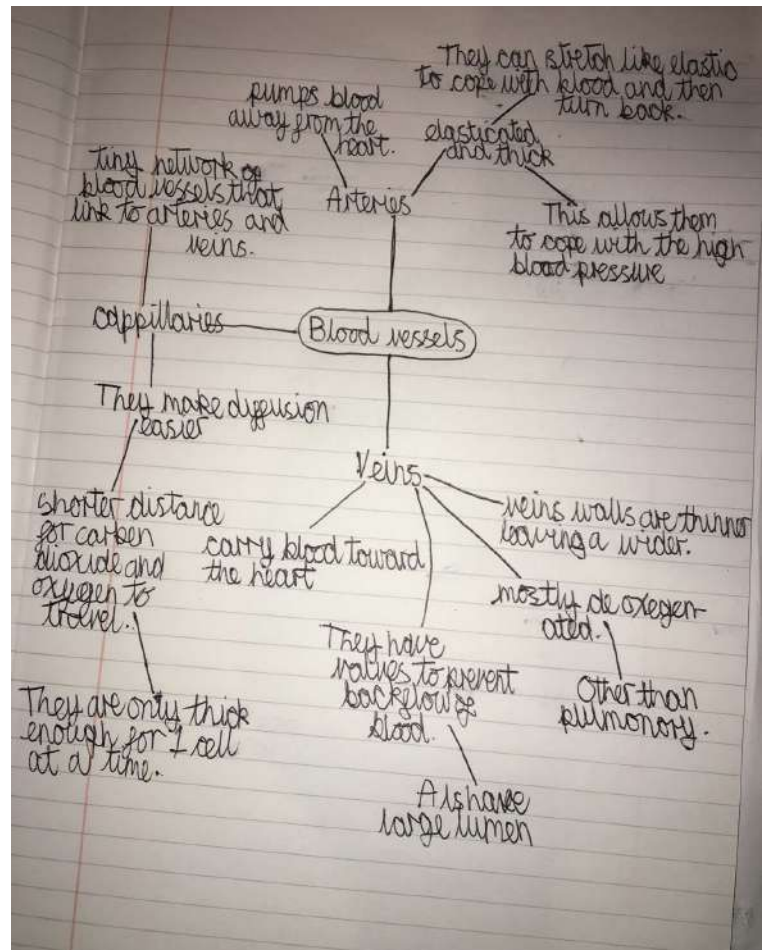 They can stretch like elastic
to cope with blood and then
turn back.
pumps blood
away from the
heart.
elasticated
and thick
tiny network of
blood vessels that
link to arteries and
veins.
Arteries
This allows them
to cope with the high
blood pressure
cappillaries
Blood vessels
They make diffusion
easier
Veins
shorter distance
for carben
dioxide and
oxygen to
travel.
carry blood toward
the heart
veins walls are thinner
leaving a wider.
mostly de oxegen-
ated.
Other than
pulmonory.
They have
valves to prevent
backflow of
blood.
They are only thick
enough for 1 cell
at a time.
large lumen